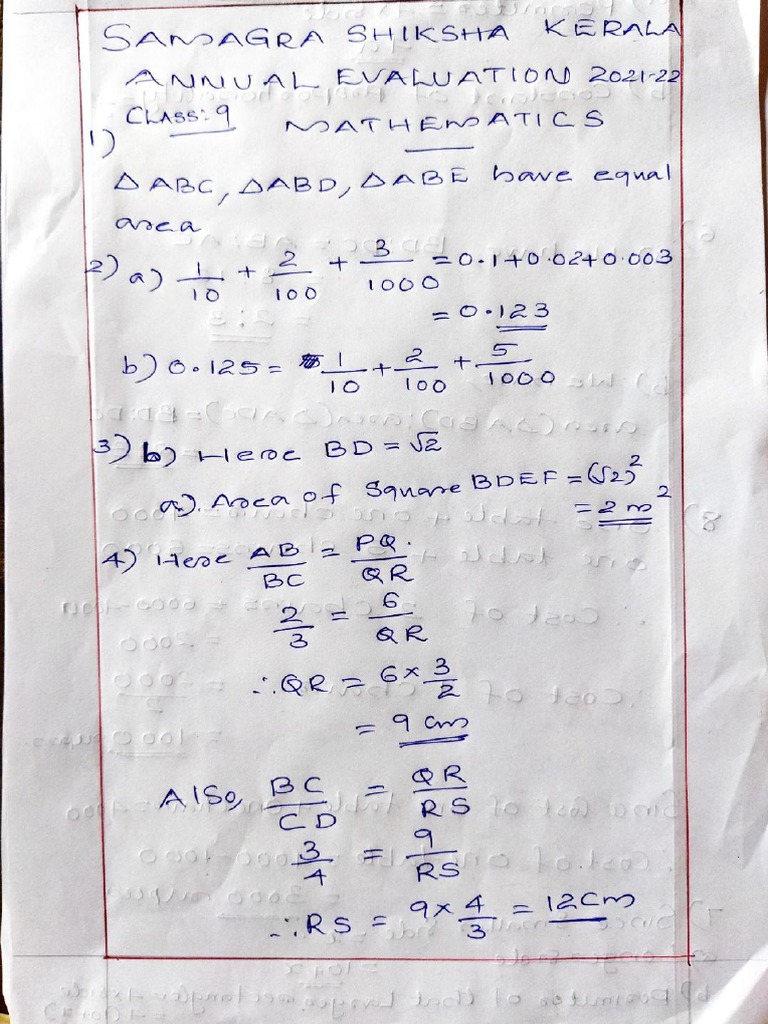 SAMAGRA SHIKSHA KERALA
ANNUAL EVALUATION 2021-22
CLASS: 9 MATHEMATICS
1)
△ABC, △ABD, △ABE have equal
area
2) a) 1/10 + 2/100 + 3/1000 = 0.1+0.02+0.003
= 0.123
b) 0.125 = 1/10 + 2/100 + 5/1000
3) b) Here BD = √2
a). Area of Square BDEF = (√2)²
= 2 m²
4) Here AB/BC = PQ/QR
2/3 = 6/QR
∴ QR = 6 × 3/2
= 9 cm
Also, BC/CD = QR/RS
3/4 = 9/RS
∴ RS = 9 × 4/3 = 12 cm